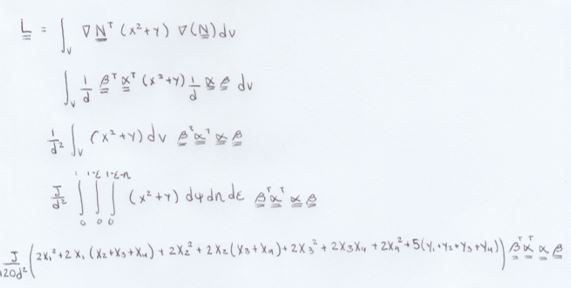 L = ∫_V ∇N^T (x²+y) ∇(N) dv
∫_V 1/d β^T α^T (x²+y) 1/d α β dv
1/d² ∫_V (x²+y) dv β^T α^T α β
J/d² ∫₀¹ ∫₀^(1-ε) ∫₀^(1-ε-n) (x²+y) dψ dn dε β^T α^T α β
J/120d² (2x₁² + 2x₁(x₂+x₃+x₄) + 2x₂² + 2x₂(x₃+x₄) + 2x₃² + 2x₃x₄ + 2x₄² + 5(y₁+y₂+y₃+y₄)) β^T α^T α β